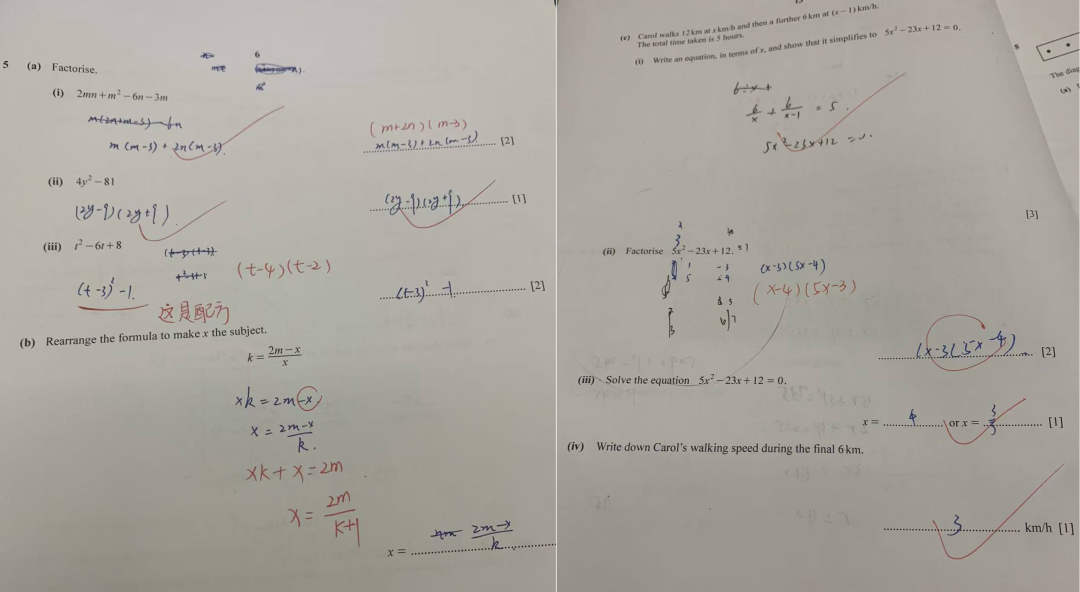 5 (a) Factorise.
6
(i) 2mn + m² − 6n − 3m
m(2n+m-3)-6n
m(m-3) + 2n(m-3).
(m+2n)(m-3)
m(m-3)+2n(m-3) [2]
(ii) 4y² − 81
(2y-9)(2y+9)
(2y-9)(2y+9) [1]
(iii) t² − 6t + 8
(t-4)(t-2)
(t-3)² -1.
(t-3)² -1 [2]
这是配方
(b) Rearrange the formula to make x the subject.
k = (2m − x)/x
xk = 2m-x
x = (2m-x)/k.
xk + x = 2m
x = 2m/(k+1)
x = (2m-x)/k
(c) Carol walks 12 km at x km/h and then a further 6 km at (x − 1) km/h.
The total time taken is 5 hours.
(i) Write an equation, in terms of x, and show that it simplifies to 5x² − 23x + 12 = 0.
6÷x+
6/x + 6/(x-1) = 5.
5x²-23x+12 = 0.
[3]
(ii) Factorise 5x² − 23x + 12.
1 -3
5 -4
(x-3)(5x-4)
(x-4)(5x-3)
(x-3(5x-4) [2]
(iii) Solve the equation 5x² − 23x + 12 = 0.
x = 4 or x = 3/5 [1]
(iv) Write down Carol's walking speed during the final 6 km.
3 km/h [1]
8
The diag
(a)